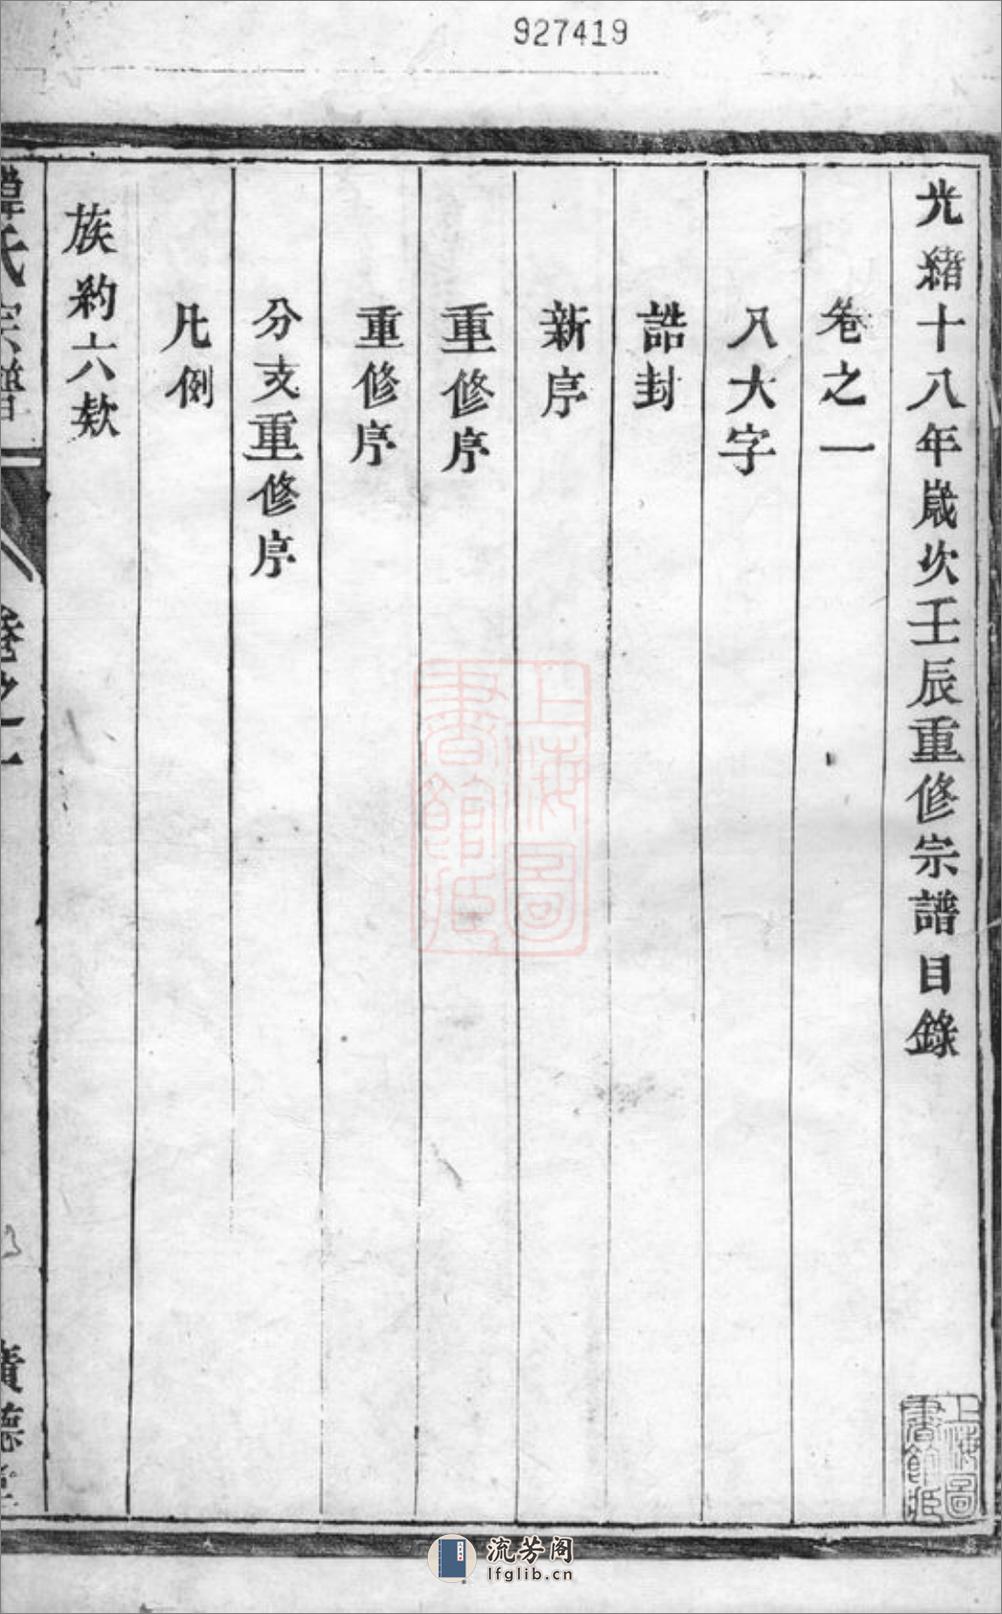 927419
光緒十八年歲次壬辰重修宗譜目錄
卷之一
八大字
誥封
新序
重修序
重修序
分支重修序
凡例
族約六欵
氏宗譜
卷之一
廣德
上海圖書館藏
上海圖書館藏
流芳阁
lfglib.cn